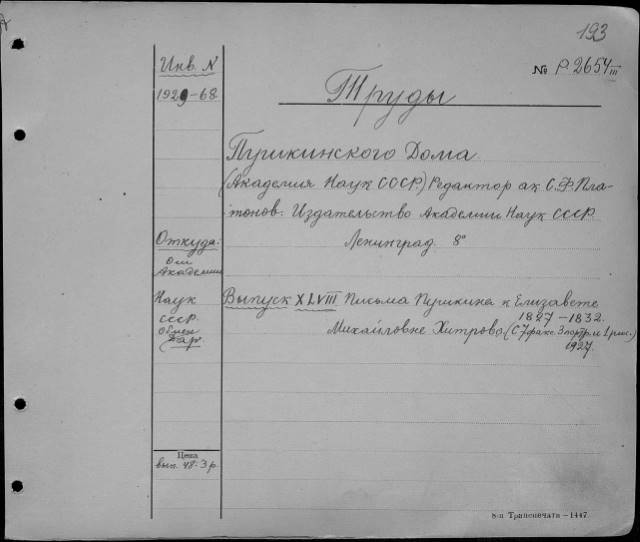 193
Инв. N
№ Р.2654 III
1929-68
Труды
Пушкинского Дома.
(Академия Наук СССР.) Редактор ак. С. Ф. Пла-
тонов. Издательство Академии Наук СССР.
Ленинград. 8°
Откуда:
От
Академии
Наук
СССР.
Обмен
Дар.
Выпуск XLVIII Письма Пушкина к Елизавете
1827-1832.
Михайловне Хитрово. (С 7 факс. 3 портр. и 1 рис.)
1927.
Цена
вып. 48-3 р.
8-я Транспечати — 1447.